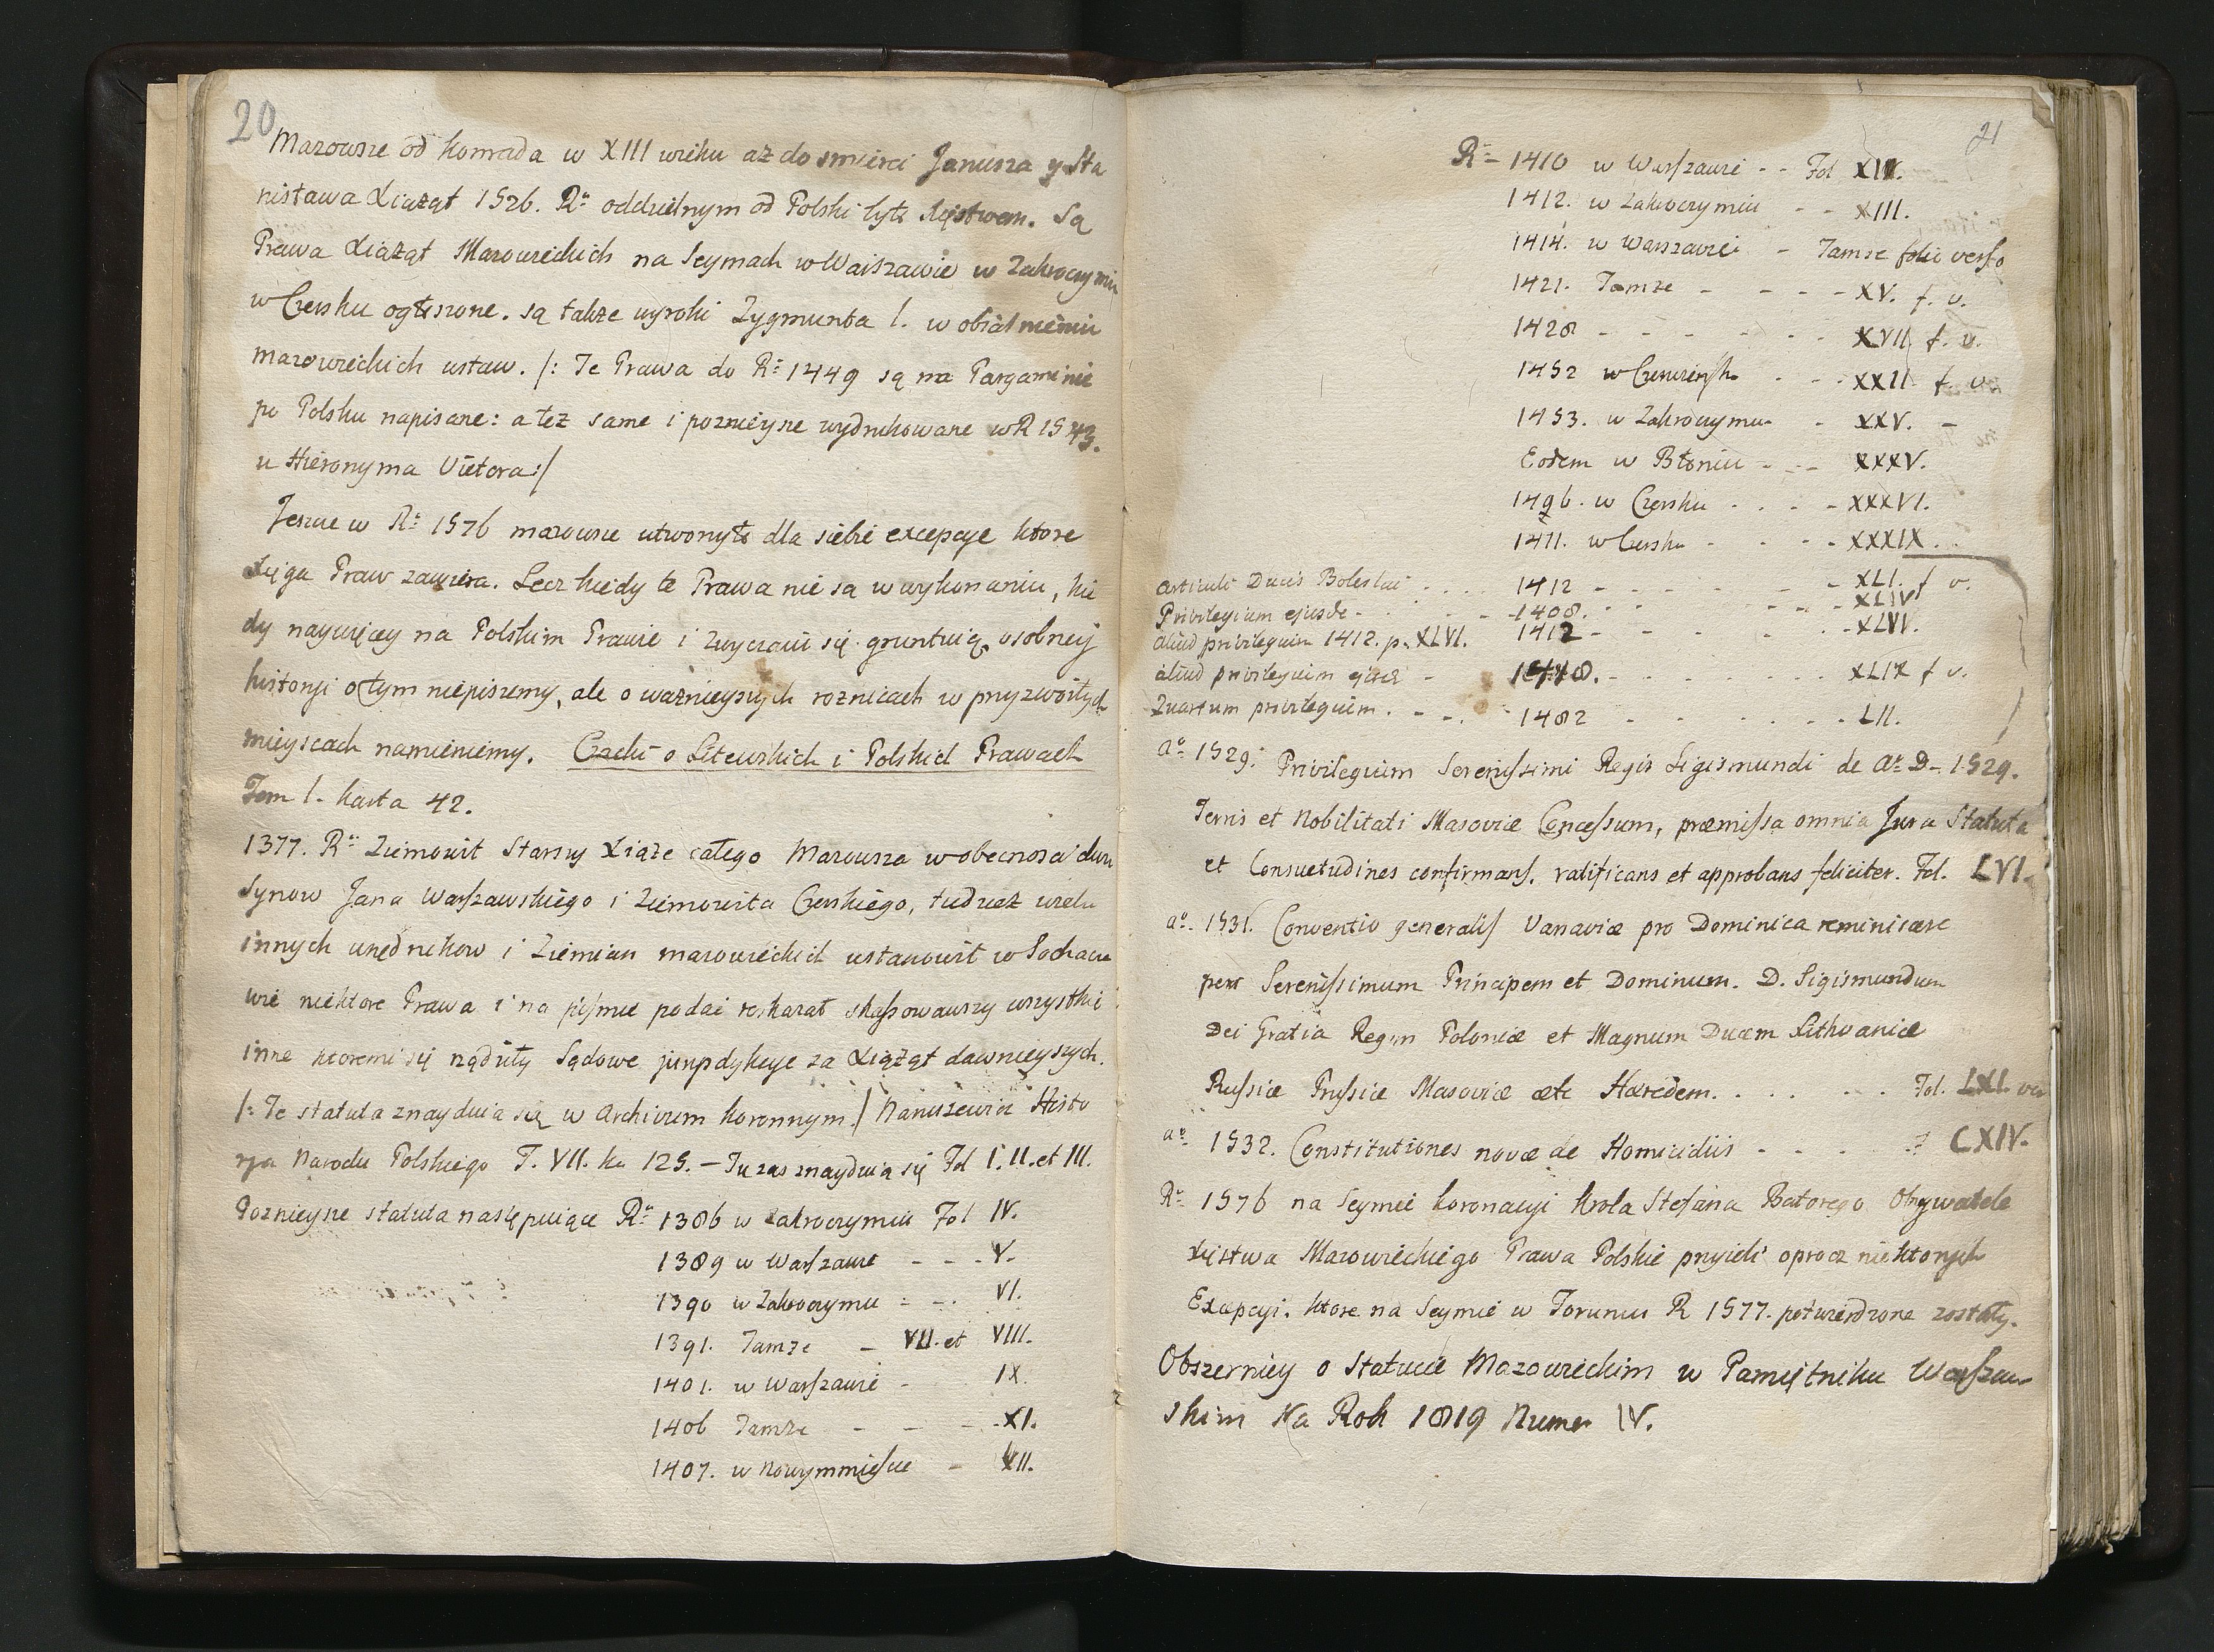 20
Mazowsze od Konrada w XIII wieku aż do smierci Janusza y Sta
nisława Xiążąt 1526. Rº oddzielnym od Polski było Xięstwem. Są
Prawa Xiążąt Mazowieckich na Seymach w Warszawie w Zakroczymiu
w Czersku ogłoszone. są także wyroki Zygmunta I. w obiaśnieniu
mazowieckich ustaw. /: Te Prawa do Rº 1449 są na Pargaminie
po Polsku napisane: a też same i poznieysze wydrukowane w R 1543.
u Hieronyma Vietora :/
Jeszcze w Rº 1576 mazowsze utworzyło dla siebie excepcye ktore
Xięga Praw zawiera. Lecz kiedy te Prawa nie są w wykonaniu, kie
dy naywięcey na Polskim Prawie i zwyczaiu się gruntuią, osobney
historyi o tym niepiszemy, ale o waznieyszych roznicach w przyzwoitych
mieyscach namieniemy. Czacki o Litewskich i Polskich Prawach
Tom I. karta 42.
1377. Rº Ziemowit Starszy Xiąże całego Mazowsza w obecnosci dwu
Synow Jana Warszawskiego i Ziemowita Czerskiego, tudzież wielu
innych urzędnikow i Ziemian mazowieckich ustanowił w Sochacze
wie niektore Prawa i na piśmie podać roskazał skassowawszy wszystkie
inne ktoremi się rządziły Sądowe juryzdykcye za Xiążąt dawnieyszych.
/: Te statuta znayduia się w Archivum koronnym :/ Naruszewicz Histo
rya Narodu Polskiego T. VII. ka 125. — Tu zas znayduią się Fol I. II. et III.
Poznieysze statuta nasiępuiące Rº 1386 w Zakroczymiu Fol IV.
1389 w Warszawie - - - V.
1390 w Zakroczymiu - - . VI.
1391. Tamże - VII. et VIII.
1401. w Warszawie - IX.
1406 Tamże - - - XI.
1407. w Nowymmieście - XII.
21
Rº 1410 w Warszawie - - Fol XII.
1412. w Zakroczymiu - - XIII.
1414. w Warszawie - Tamze folio verso
1421. Tamze - - - - XV. f. v.
1428 - - - - - - XVII f. v.
1452 w Czerwińsku . - . XXII f. v.
1453. w Zakroczymiu - XXV. -
Eodem w Błoniu - - - XXXV.
1496. w Czersku . . . - XXXVI.
1471. w Czersku - - - - XXXIX.
Articuli Ducis Boleslai . . . . 1412 - - - - - XLI. f v.
Privilegium ejusde - . - - 1408. - - - - - XLIV
aliud privilegium 1412. p. XLVI. 1412 - - - - - XLVI.
aliud privilegium ejusd - 1448. - - - - - - XLIX f v.
Quartum privilegium. - - . 1482 - - - - - LII.
aº 1529. Privilegium Serenissimi Regis Sigismundi de Aº D- 1529.
Terris et Nobilitati Masoviæ Concessum, præmissa omnia Jura Statuta
et Consuetudines confirmans. ratificans et approbans feliciter. Fol. LVI.
aº. 1531. Conventio generalis Varsaviæ pro Dominica reminiscere
per Serenissimum Principem et Dominum. D. Sigismundum
Dei Gratia Regem Poloniæ et Magnum Ducem Lithuaniæ
Russiæ Prussiæ Masoviæ etc Hæredem. . . . . - - . Fol. LXI. ver
aº 1532. Constitutiones novæ de Homicidiis - - . . . f CXIV.
Rº 1576 na Seymie koronacyi Krola Stefana Batorego Obywatele
Xięstwa Mazowieckiego Prawa Polskie przyieli oprocz niektorych
Excepcyi. ktore na Seymie w Toruniu R 1577. potwierdzone zostały.
Obszerniey o Statucie Mazowieckim w Pamiętniku Warszaw
skim Na Rok 1819 Numer IV.